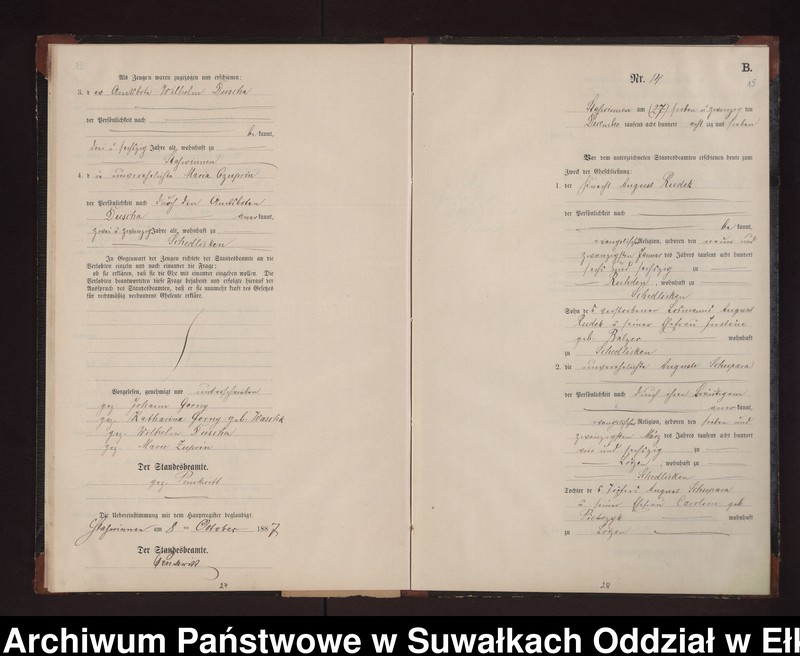 Als Zeugen waren zugezogen und erschienen:
3. der Amtsbote Wilhelm Duscha
der Persönlichkeit nach
be kannt,
drei u sechszig Jahre alt, wohnhaft zu
Staswinnen
4. die unverehelichte Maria Czuprin
der Persönlichkeit nach durch den Amtsboten
Duscha anerkannt,
zwei u. zwanzig Jahre alt, wohnhaft zu
Schedlisken
In Gegenwart der Zeugen richtete der Standesbeamte an die
Verlobten einzeln und nach einander die Frage:
ob sie erklären, daß sie die Ehe mit einander eingehen wollen. Die
Verlobten beantworteten diese Frage bejahend und erfolgte hierauf der
Ausspruch des Standesbeamten, daß er sie nunmehr kraft des Gesetzes
für rechtmäßig verbundene Eheleute erkläre.
Vorgelesen, genehmigt und unterschrieben
gez. Johann Gorny
gez. Katharina Gorny geb.
gez. Wilhelm Duscha
gez. Marie
Der Standesbeamte.
gez.
Die Uebereinstimmung mit dem Hauptregister beglaubigt.
Staswinnen am 8 ten October 1887
Der Standesbeamte.
27
B.
Nr. 14
Staswinnen am (27) sieben u. zwanzig ten
Dezember tausend acht hundert acht zig und sieben
Vor dem unterzeichneten Standesbeamten erschienen heute zum
Zweck der Eheschließung:
1. der Knecht August Rudek
der Persönlichkeit nach
be kannt,
evangelischer Religion, geboren den neun und
zwanzigsten Januar des Jahres tausend acht hundert
sechs und sechszig zu
, wohnhaft zu
Schedlisken
Sohn des verstorbenen Losmanns August
Rudek u seiner Ehefrau Justine
geb. Balzer wohnhaft
zu Schedlisken
2. die unverehelichte Auguste
der Persönlichkeit nach durch ihren Bräutigam
anerkannt,
evangelischer Religion, geboren den sieben und
zwanzigsten März des Jahres tausend acht hundert
und sechszig zu
Lötzen, wohnhaft zu
Schedlisken
Tochter des August
u seiner Ehefrau Caroline geb.
wohnhaft
zu Lötzen
28
Archiwum Państwowe w Suwałkach Oddział w Ełk